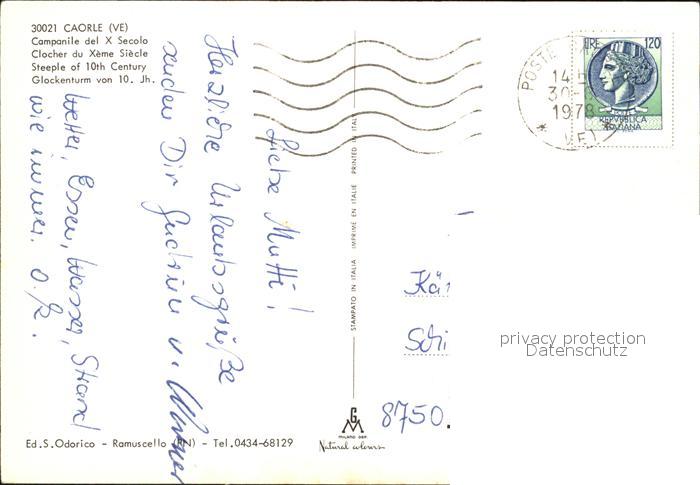 30021 CAORLE (VE)
Campanile del X Secolo
Clocher du Xème Siècle
Steeple of 10th Century
Glockenturm von 10. Jh.
Liebe Mutti!
Herzliche Urlaubsgrüße
senden Dir Gudrun u.
Wetter, Essen, Wasser, Strand
wie immer. O.K.
STAMPATO IN ITALIA IMPRIMÉ EN ITALIE PRINTED IN ITALY
POSTE
14
30
1978
(VE)
LIRE 120
REPVBBLICA
ITALIANA
Kä
Schi
8750.
privacy protection
Datenschutz
Ed.S.Odorico - Ramuscello (PN) - Tel.0434-68129
G
M
MILANO DEP.
Natural colours